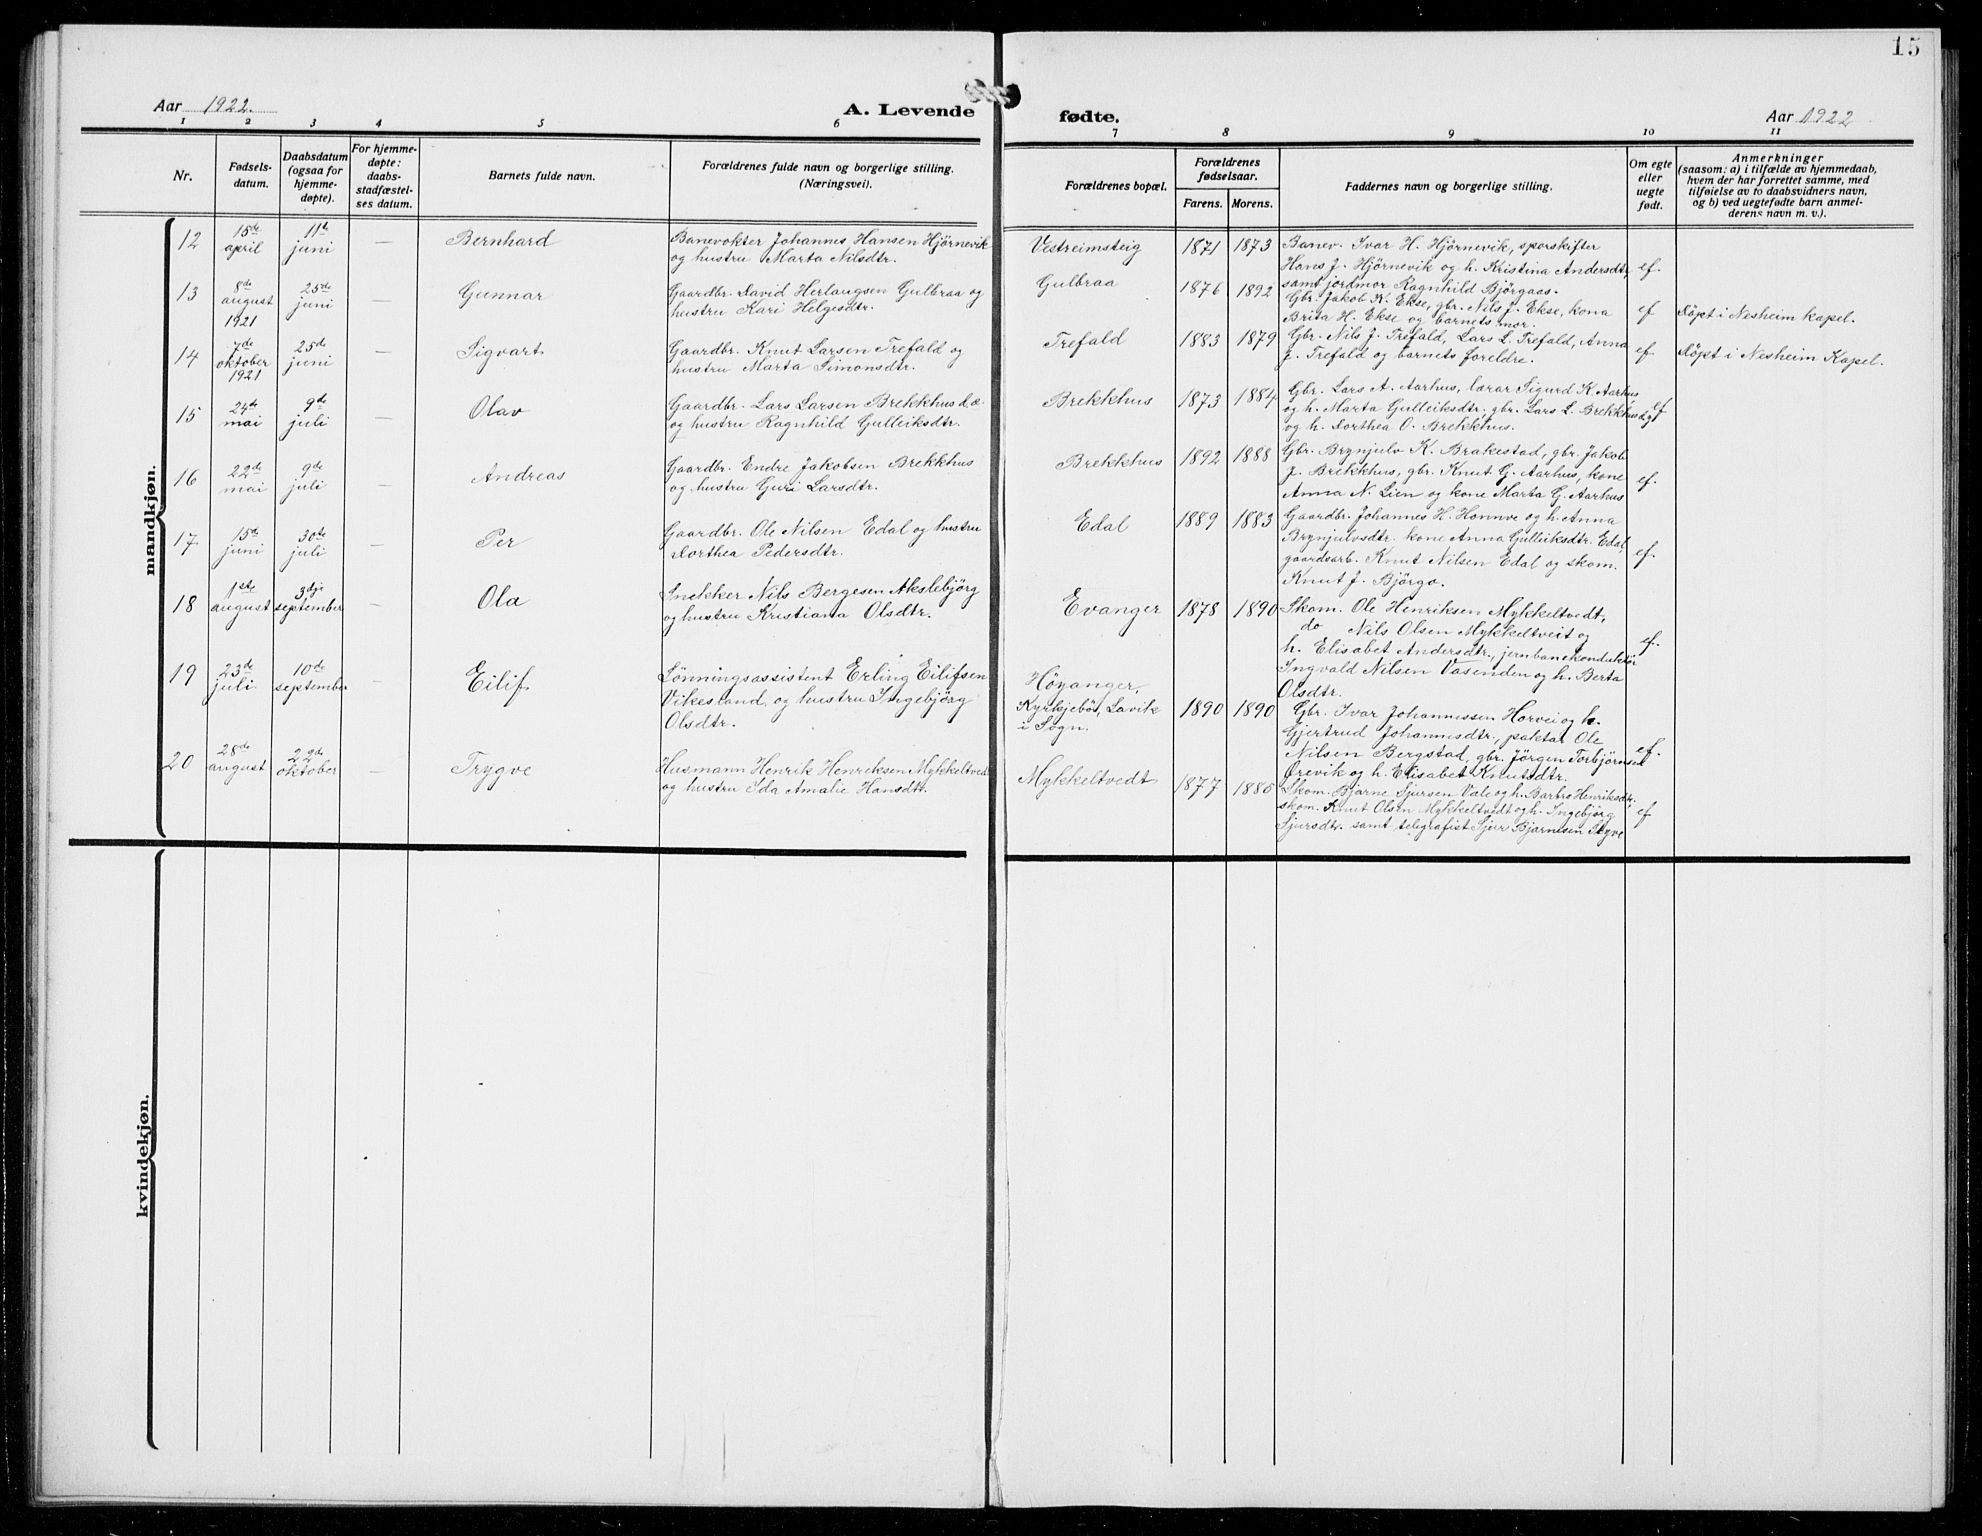 15
Aar 1922.
A. Levende
fødte.
Aar 1922
1 2 3 4 5 6 7 8 9 10 11
Nr.
Fødsels-
datum.
Daabsdatum
(ogsaa for
hjemme-
døpte).
For hjemme-
døpte:
daabs-
stadfæstel-
ses datum.
Barnets fulde navn.
Forældrenes fulde navn og borgerlige stilling.
(Næringsvei).
Forældrenes bopæl.
Forældrenes
fødselsaar.
Farens. Morens.
Faddernes navn og borgerlige stilling.
Om egte
eller
uegte
født.
Anmerkninger
(saasom: a) i tilfælde av hjemmedaab,
hvem der har forrettet samme, med
tilføielse av to daabsvidners navn,
og b) ved uegtefødte barn anmel-
derens navn m. v.).
mandkjøn.
12
15de
april
11te
juni
—
Bernhard
Banevokter Johannes Hansen Hjørnevik
og hustru Marta Nilsdtr.
Vestreimsteig
1871
1873
Banev. Ivar H. Hjørnevik, sporskifter
Hans J. Hjørnevik og h. Kristina Andersdtr,
samt jordmor Ragnhild Bjørgaas.
ef.
13
8de
august
1921
25de
juni
—
Gunnar
Gaardbr. David Herlaugsen Gulbraa og
hustru Kari Helgesdtr.
Gulbraa
1876
1892
Gbr. Jakob K. Ekse, gbr. Nils J. Ekse, kona
Brita H. Ekse og barnets mor.
ef
Døpt i Nesheim kapel.
14
7de
oktober
1921
25de
juni
—
Sigvart
Gaardbr. Knut Larsen Trefald og
hustru Marta Simonsdtr.
Trefald
1883
1879
Gbr. Nils J. Trefald, Lars L. Trefald, Anna
J. Trefald og barnets foreldre.
ef
Døpt i Nesheim Kapel.
15
24de
mai
9de
juli
—
Olav
Gaardbr. Lars Larsen Brekkhus d.æ.
og hustru Ragnhild Gulleiksdtr.
Brekkhus
1873
1884
Gbr. Lars A. Aarhus, lærar Sigurd K. Aarhus
og h. Marta Gulleiksdtr. gbr. Lars L. Brekkhus d.y.
og h. Dorthea O. Brekkhus.
ef
16
22de
mai
9de
juli
—
Andreas
Gaardbr. Endre Jakobsen Brekkhus
og hustru Guri Larsdtr.
Brekkhus
1892
1888
Gbr. Brynjulv K. Brakestad, gbr. Jakob
J. Brekkhus, gbr. Knut G. Aarhus, kone
Anna N. Lien og kone Marta G. Aarhus
ef.
17
15de
juni
30te
juli
—
Per
Gaardbr. Ole Nilsen Edal og hustru
Dorthea Pedersdtr.
Edal
1889
1883
Gaardbr. Johannes H. Honnve og h. Anna
Brynjulvsdtr. kone Anna Gulleiksdtr. Edal,
gaardsarb. Knut Nilsen Edal og skom.
Knut J. Bjørgo.
ef.
18
1ste
august
3dje
september
—
Ola
Snekker Nils Bergesen Akslebjørg
og hustru Kristiana Olsdtr.
Evanger
1878
1890
Skom. Ole Henriksen Mykkeltvedt,
do Nils Olsen Mykkeltveit og
h. Elisabet Andersdtr., jernbanekonduktør
Ingvald Nilsen Vasenden og h. Berta
Olsdtr.
ef.
19
23de
juli
10de
september
—
Eilif
Lønningsassistent Erling Eilifsen
Vikesland og hustru Ingebjørg
Olsdtr.
Høyanger,
Kyrkjebø, Lavik
i Sogn.
1890
1890
Gbr. Ivar Johannessen Horvei og h.
Gjertrud Johannesdtr., paktar Ole
Nilsen Bergstad, gbr. Jørgen Torbjørnsen
Ørevik og h. Elisabet Knutsdtr.
ef.
20
28de
august
22de
oktober
—
Trygve
Husmann Henrik Henriksen Mykkeltvedt
og hustru Ida Amalie Hansdtr.
Mykkeltvedt
1877
1885
Skom. Bjarne Sjursen Vale og h. Barbro Henriksdtr.
skom. Knut Olsen Mykkeltvedt og h. Ingebjørg
Sjursdtr. samt telegrafist Sjur Bjarnesen
ef
kvindekjøn.